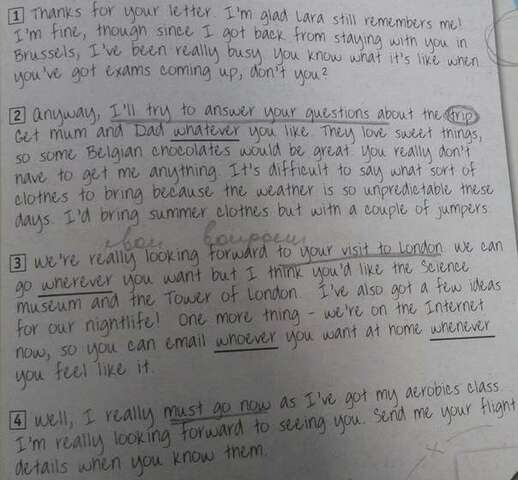 1 Thanks for your letter. I'm glad Lara still remembers me!
I'm fine, though since I got back from staying with you in
Brussels, I've been really busy. You know what it's like when
you've got exams coming up, don't you?
2 Anyway, I'll try to answer your questions about the trip.
Get Mum and Dad whatever you like. They love sweet things,
so some Belgian chocolates would be great. You really don't
have to get me anything. It's difficult to say what sort of
clothes to bring because the weather is so unpredictable these
days. I'd bring summer clothes but with a couple of jumpers.
3 We're really looking forward to your visit to London. We can
go wherever you want but I think you'd like the Science
Museum and the Tower of London. I've also got a few ideas
for our nightlife! One more thing – we're on the Internet
now, so you can email whoever you want at home whenever
you feel like it.
4 Well, I really must go now as I've got my aerobics class.
I'm really looking forward to seeing you. Send me your flight
details when you know them.